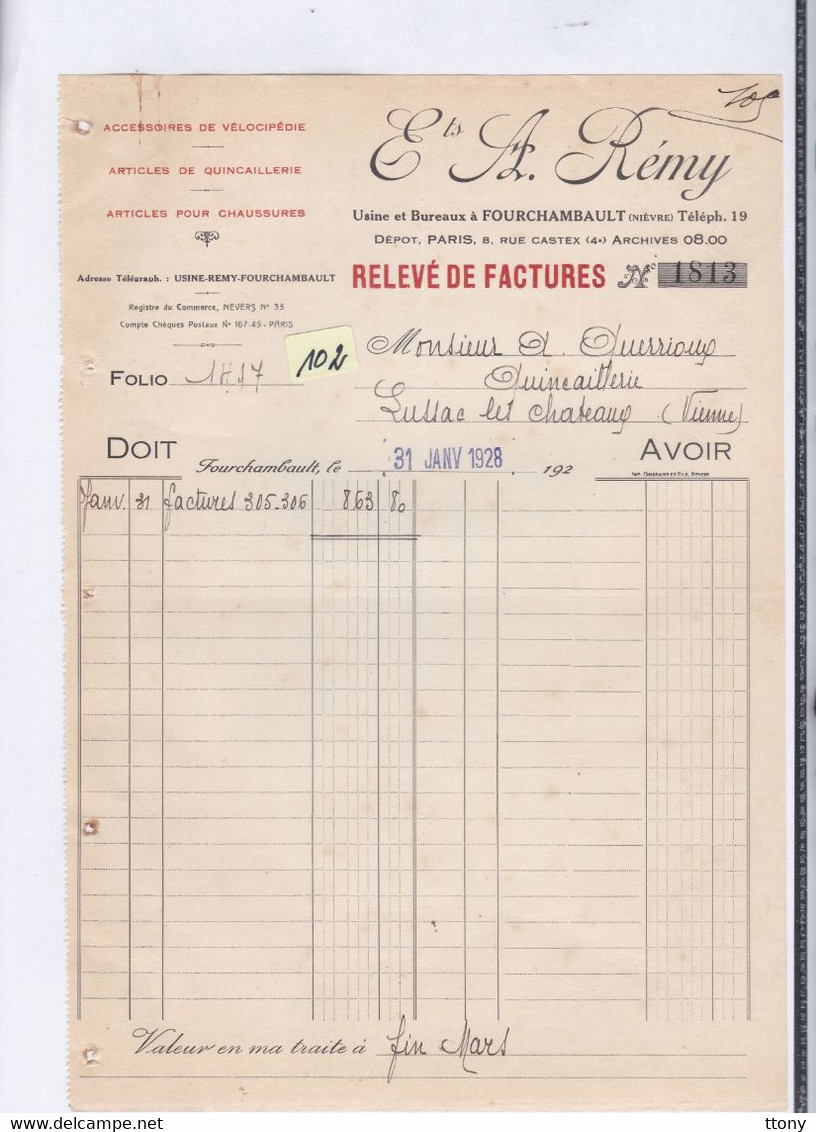 ACCESSOIRES DE VÉLOCIPÉDIE
ARTICLES DE QUINCAILLERIE
ARTICLES POUR CHAUSSURES
Adresse Télégraph. : USINE-REMY-FOURCHAMBAULT
Registre du Commerce, NEVERS N° 35
Compte Chèques Postaux N° 167-45 - PARIS
Ets A. Rémy
Usine et Bureaux à FOURCHAMBAULT (NIÈVRE) Téléph. 19
DÉPOT, PARIS, 8, RUE CASTEX (4e) ARCHIVES 08.00
RELEVÉ DE FACTURES No 1813
102
FOLIO
Monsieur A. Guerrioux
Quincaillerie
Lussac les Chateaux (Vienne)
DOIT
Fourchambault, le 31 JANV 1928 192
AVOIR
Janv. 31 factures 305-306 863 80
Valeur en ma traite à fin Mars
ttony
delcampe.net